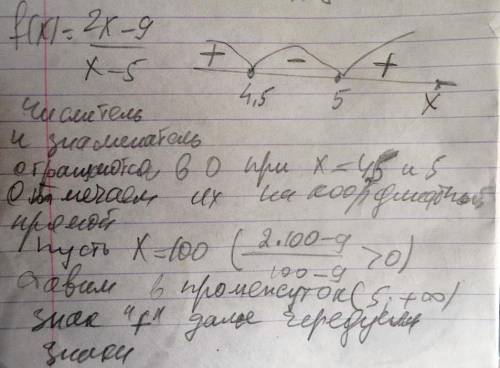 f(x)= 2x-9 / x-5
+ - +
4,5 5 x
числитель
и знаменатель
отращаются в 0 при x=4,5 и 5
Отмечаем их на координатной
прямой
пусть x=100 ( 2·100-9 / 100-9 >0)
ставим в промежуток (5, +∞)
знак "+" далее чередуем
знаки